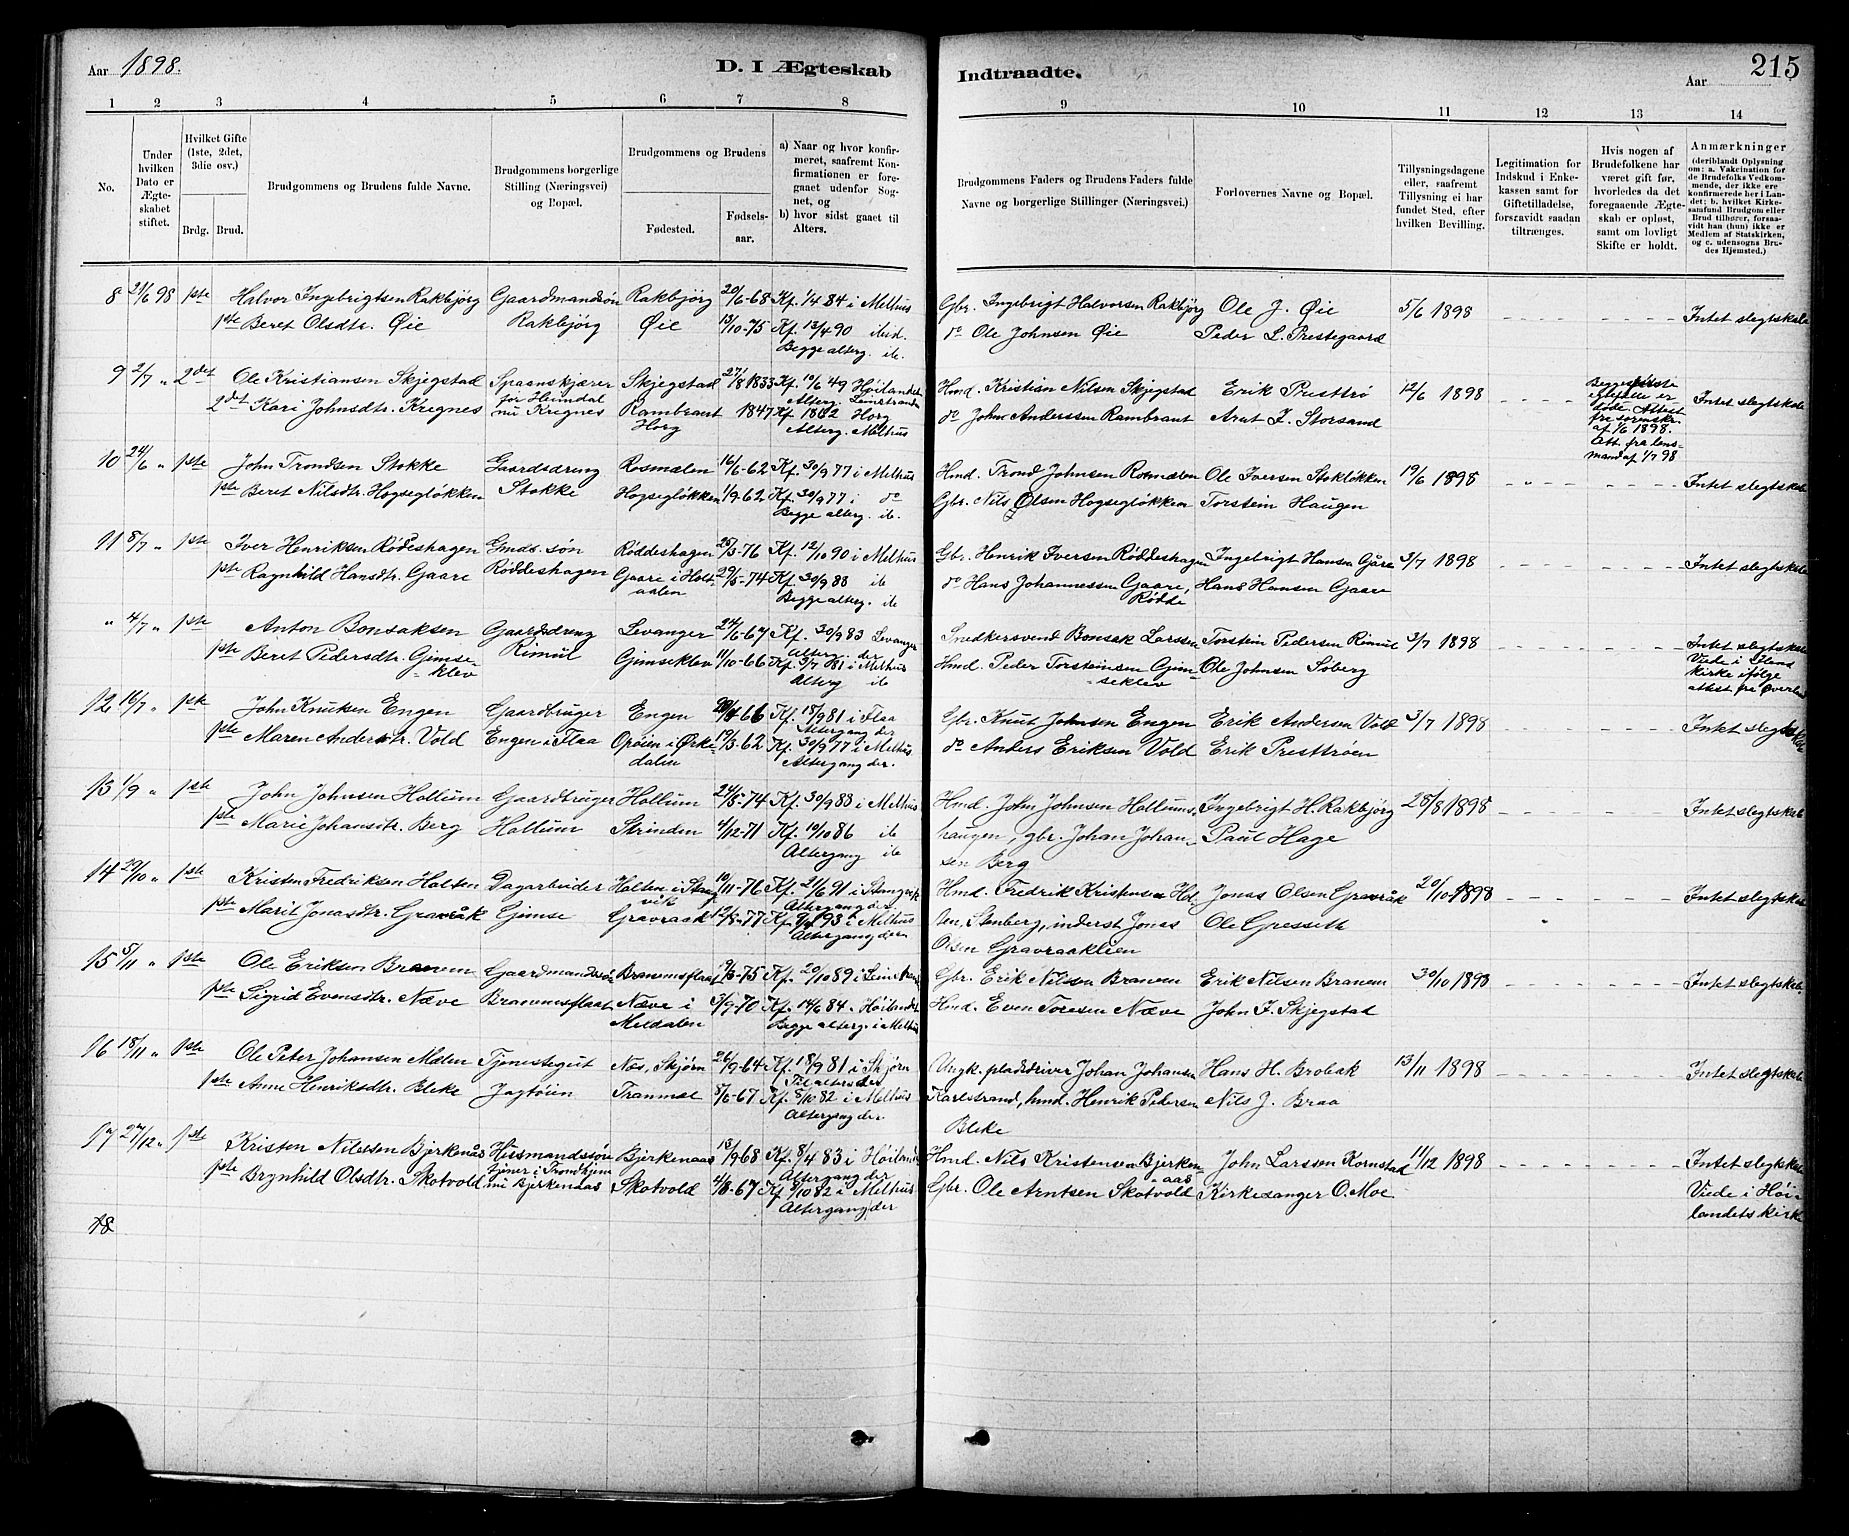 Aar 1898.
D. I Ægteskab
Indtraadte.
Aar
215
1 2 3 4 5 6 7 8 9 10 11 12 13 14
No.
Under hvilken Dato er Ægteskabet stiftet.
Hvilket Gifte (1ste, 2det, 3die osv.)
Brdg. Brud.
Brudgommens og Brudens fulde Navne.
Brudgommens borgerlige Stilling (Næringsvei) og Bopæl.
Brudgommens og Brudens
Fødested.
Fødselsaar.
a) Naar og hvor konfirmeret, saafremt Konfirmationen er foregaaet udenfor Sognet, og
b) hvor sidst gaaet til Alters.
Brudgommens Faders og Brudens Faders fulde Navne og borgerlige Stillinger (Næringsvei.)
Forlovernes Navne og Bopæl.
Tillysningsdagene eller, saafremt Tillysning ei har fundet Sted, efter hvilken Bevilling.
Legitimation for Indskud i Enkekassen samt for Giftetilladelse, forsaavidt saadan tiltrænges.
Hvis nogen af Brudefolkene har været gift før, hvorledes da det foregaaende Ægteskab er opløst, samt om lovligt Skifte er holdt.
Anmærkninger (deriblandt Oplysning om: a. Vakcination for de Brudefolks Vedkommende, der ikke ere konfirmerede her i Landet; b. hvilket Kirkesamfund Brudgom eller Brud tilhører, forsaavidt han (hun) ikke er Medlem af Statskirken, og c. udensogns Brudes Hjemsted.)
8 21/6 98 1ste Halvor Ingebrigtsen Rakbjørg Gaardmandsøn Rakbjørg 20/6-68 Kf. 1/4 84 i Melhus Gbr. Ingebrigt Halvorsen Rakbjørg Ole J. Øie 5/6 1898 Intet slegtskab
1ste Beret Olsdtr. Øie Rakbjørg Øie 13/10-75 Kf. 13/4 90 ibid. do Ole Johnsen Øie Peder L. Prestegaard
Begge alterg. ib.
9 2/7 " 2det Ole Kristiansen Skjegstad Spaanskjærer Skjegstad 27/8 1833 Kf. 10/6 49 Høilandet Hmd. Kristian Nilsen Skjegstad Erik Presttrø 12/6 1898 Begges første egtefelle er døde. Attest fra sorenskr. af 1/6 1898. Att. fra lensmand af 1/7 98 Intet slegtskab
før Heimdal Alterg. Leinstranden
2det Kari Johnsdtr. Kregnes nu Kregnes Rambraut Horg 1847 Kf. 1862 Horg do John Anderssen Rambraut Arnt I. Storsand
Alterg. Melhus
10 24/6 " 1ste John Trondsen Stokke Gaardsdreng Rosmælen 16/6-62 Kf. 30/9 77 i Melhus Hmd. Trond Johnsen Rosmælen Ole Iversen Stokløkken 19/6 1898 Intet slegtskab
1ste Beret Nilsdtr. Hogsegløkken Stokke Hogsegløkken 1/9-62 Kf. 30/9 77 i do Gbr. Nils Olsen Hogsegløkken Torstein Haugen
Begge alterg. ib.
11 8/7 " 1ste Iver Henriksen Røddeshagen Gmds. søn Røddeshagen 25/3-76 Kf. 12/10 90 i Melhus Gbr. Henrik Iversen Røddeshagen Ingebrigt Hansen Gåre 3/7 1898 Intet slegtskab
1ste Ragnhild Hansdtr. Gaare Røddeshagen Gaare i Holtaalen 29/5-74 Kf. 30/9 88 ib do Hans Johannessen Gaare, Rødde Hans Hansen Gaare
Begge alterg. ib
" 4/7 " 1ste Anton Bonsaksen Gaardsdreng Levanger 24/6-67 Kf. 30/9 83 Levanger Snedkersvend Bonsak Larssen Torstein Pedersen Rimul 3/7 1898 Intet slegtskab
Alterg. der
1ste Beret Pedersdtr. Gimseklev Rimul Gimseklev 11/10-66 Kf. 3/7 81 i Melhus Hmd. Peder Torsteinsen Gimseklev Ole Johnsen Søberg Viede i Ilens kirke ifølge attest fra
Alterg ib
12 16/7 " 1ste John Knutsen Engen Gaardbruger Engen 66 Kf. 18/9 81 i Flaa Gbr. Knut Johnsen Engen Erik Andersen Vold 3/7 1898 Intet slegtskab
Altergang der
1ste Maren Andersdtr. Vold Engen i Flaa Opøien i Ørkedalen 19/3-62 Kf. 30/9 77 i Melhus do Anders Eriksen Vold Erik Presttrøen
Altergang der.
13 1/9 " 1ste John Johnsen Hollum Gaardbruger Hollum 24/5-74 Kf. 30/9 88 i Melhus Hmd. John Johnsen Hollums- Ingebrigt H. Rakbjørg 28/8 1898 Intet slegtskab
1ste Marie Johansdtr. Berg Hollum Strinden 4/12-71 Kf. 10/10 86 ib haugen, gbr. Johan Johan- Paul Hage
Altergang ib sen Berg
14 29/10 " 1ste Kristen Fredriksen Halten Dagarbeider Halten i Stangvik 10/11-76 Kf. 21/6 91 i Stangvik Hmd. Fredrik Kristensen Hal- Jonas Olsen Gravråk 20/10 1898 Intet slegtskab
Altergang der
1ste Marit Jonasdtr. Gravråk Gimse Gravraak 12/8-77 Kf. 93 i Melhus ten, Stenberg, inderst Jonas Ole Gresseth
Altergang der Olsen Gravraaklien
15 5/11 " 1ste Ole Eriksen Branem Gaardmandssøn Branemsflaat 9/3-75 Kf. 20/10 89 i Leinstrand Gbr. Erik Nilsen Branem Erik Nilsen Branem 30/10 1898 Intet slegtskab.
1ste Sigrid Evensdtr. Næve Branemsflaat Næve i Meldalen 3/9-70 Kf. 14/6 84. Høilandet Hmd. Even Toresen Næve John F. Skjegstad
Begge alterg. i Melhus
16 18/11 " 1ste Ole Peter Johansen Mælen Tjenestegut Næs, Skjørn 26/9-64 Kf. 18/9 81 i Skjørn Ungk. pladsdriver Johan Johansen Hans H. Brobak 13/11 1898 Intet slegtskab
Til alters der
1ste Anne Henriksdtr. Bleke Jagtøien Tranmæl 8/6-67 Kf. 8/10 82 i Melhus Karlstrand, hmd. Henrik Pedersen Nils J. Braa
Altergang der Bleke
17 27/12 " 1ste Kristen Nilssen Bjerkenås Husmandssøn Bjerkenaas 13/9 68 Kf. 8/4 83 i Høilandet Hmd. Nils Kristensen Bjerkenaas John Larssen Kornstad 11/12 1898 Intet slegtskab
tjener i Trondhjem Altergang der
1ste Brynhild Olsdtr. Skotvold nu Bjerkenaas Skotvold 4/8-67 Kf 8/10 82 i Melhus Gbr. Ole Arntsen Skotvold Kirkesanger O. Moe Viede i Høilandets kirke
Altergang der
18